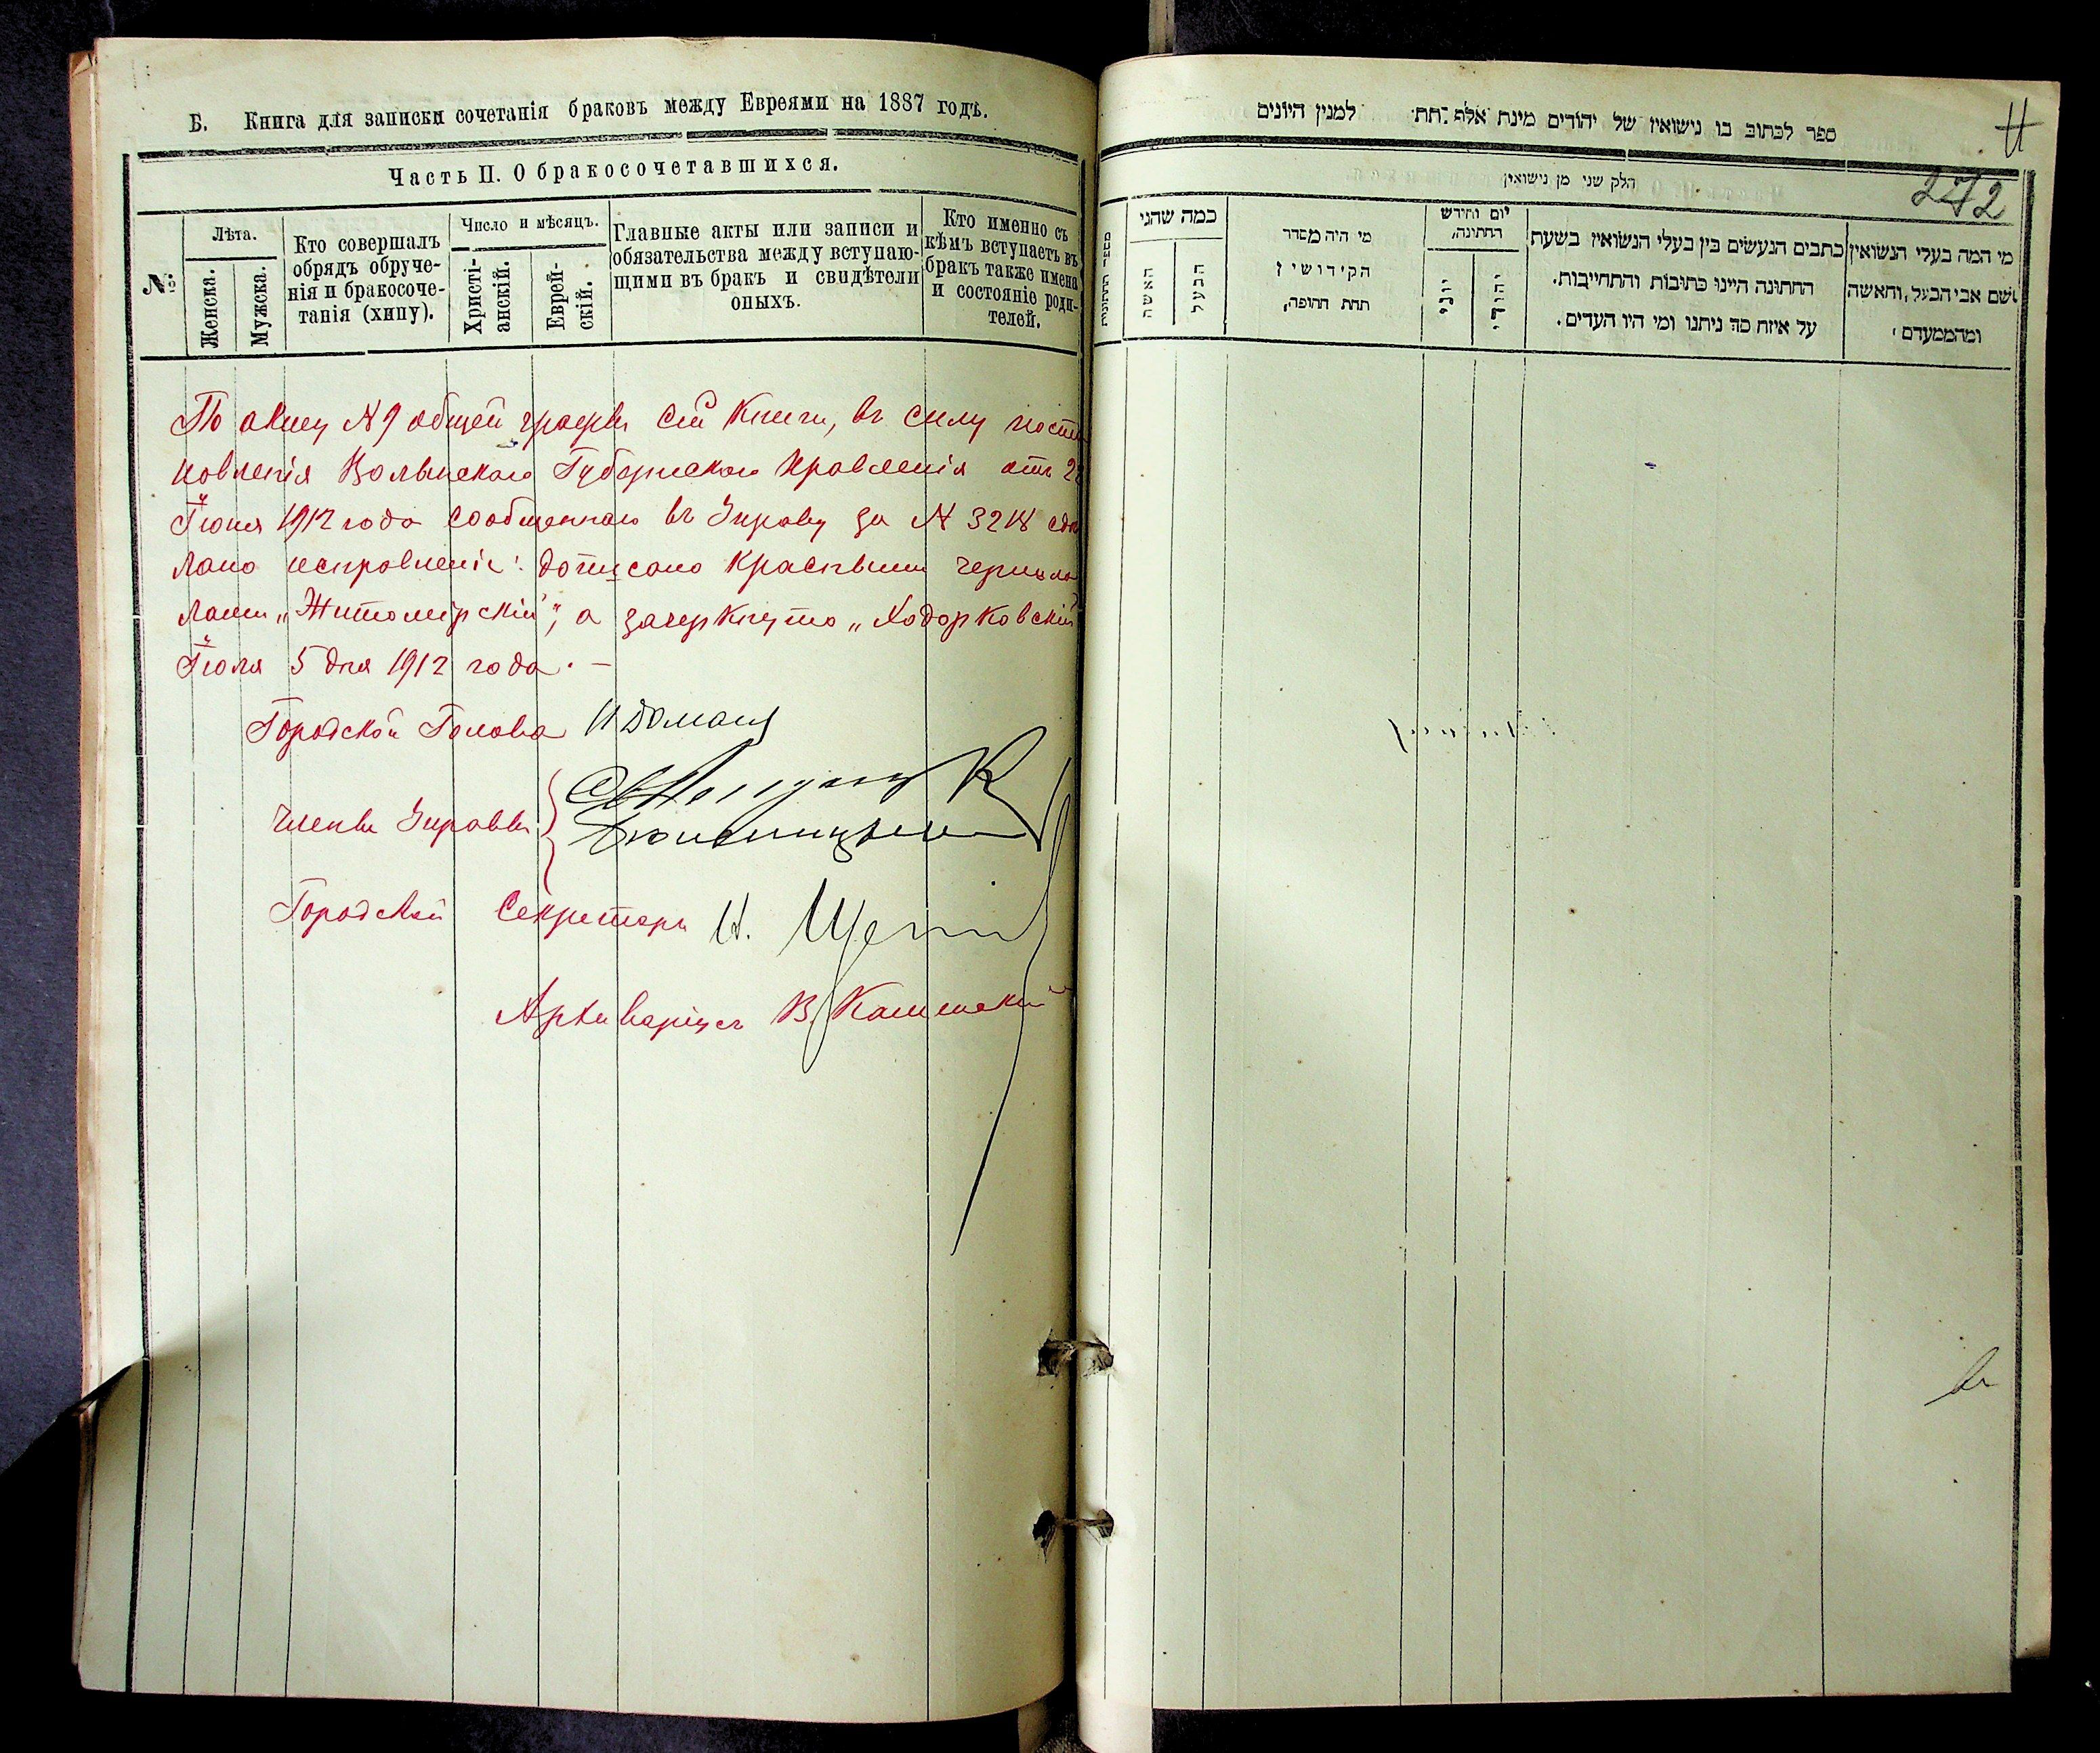 Б. Книга для записки сочетанія браковъ между Евреями на 1887 годъ.
Часть II. О бракосочетавшихся.
№
Лѣта.
Женска.
Мужска.
Кто совершалъ
обрядъ обруче-
нія и бракосоче-
танія (хипу).
Число и мѣсяцъ.
Христі-
анскій.
Еврей-
скій.
Главные акты или записи и
обязательства между вступаю-
щими въ бракъ и свидѣтели
оныхъ.
Кто именно съ
кѣмъ вступаетъ въ
бракъ также имена
и состояніе роди-
телей.
По акту № 9 общей графы сей книги, въ силу поста
новленія Волынскаго Губернскаго Правленія отъ 22
Іюня 1912 года сообщеннаго въ Управу за № 3218 сдѣ
лано исправленіе: дописано красными чернила
лами „Житомірскій", а зачеркнуто „Ходорковскій
Іюля 5 дня 1912 года. —
Городской Голова
Члены Управы
Городской Секретарь И.
Архиваріусъ В.
ספר לכתוב בו נישואין של יהודים מינת אלף תת למנין היונים
272
חלק שני מן נישואין
כמה שהני
האשה
הבעל
מי היה מסדר
הקידושין
תחת החופה,
יום וחידש
החתונה,
יוני
יהודי
כתבים הנעשים בין בעלי הנשואין בשעת
החתונה היינו כתובות והתחייבות.
על איזה סך ניתנו ומי היו העדים.
מי המה בעלי הנשואין
שם אבי הבעל, והאשה
ומהמעמדם